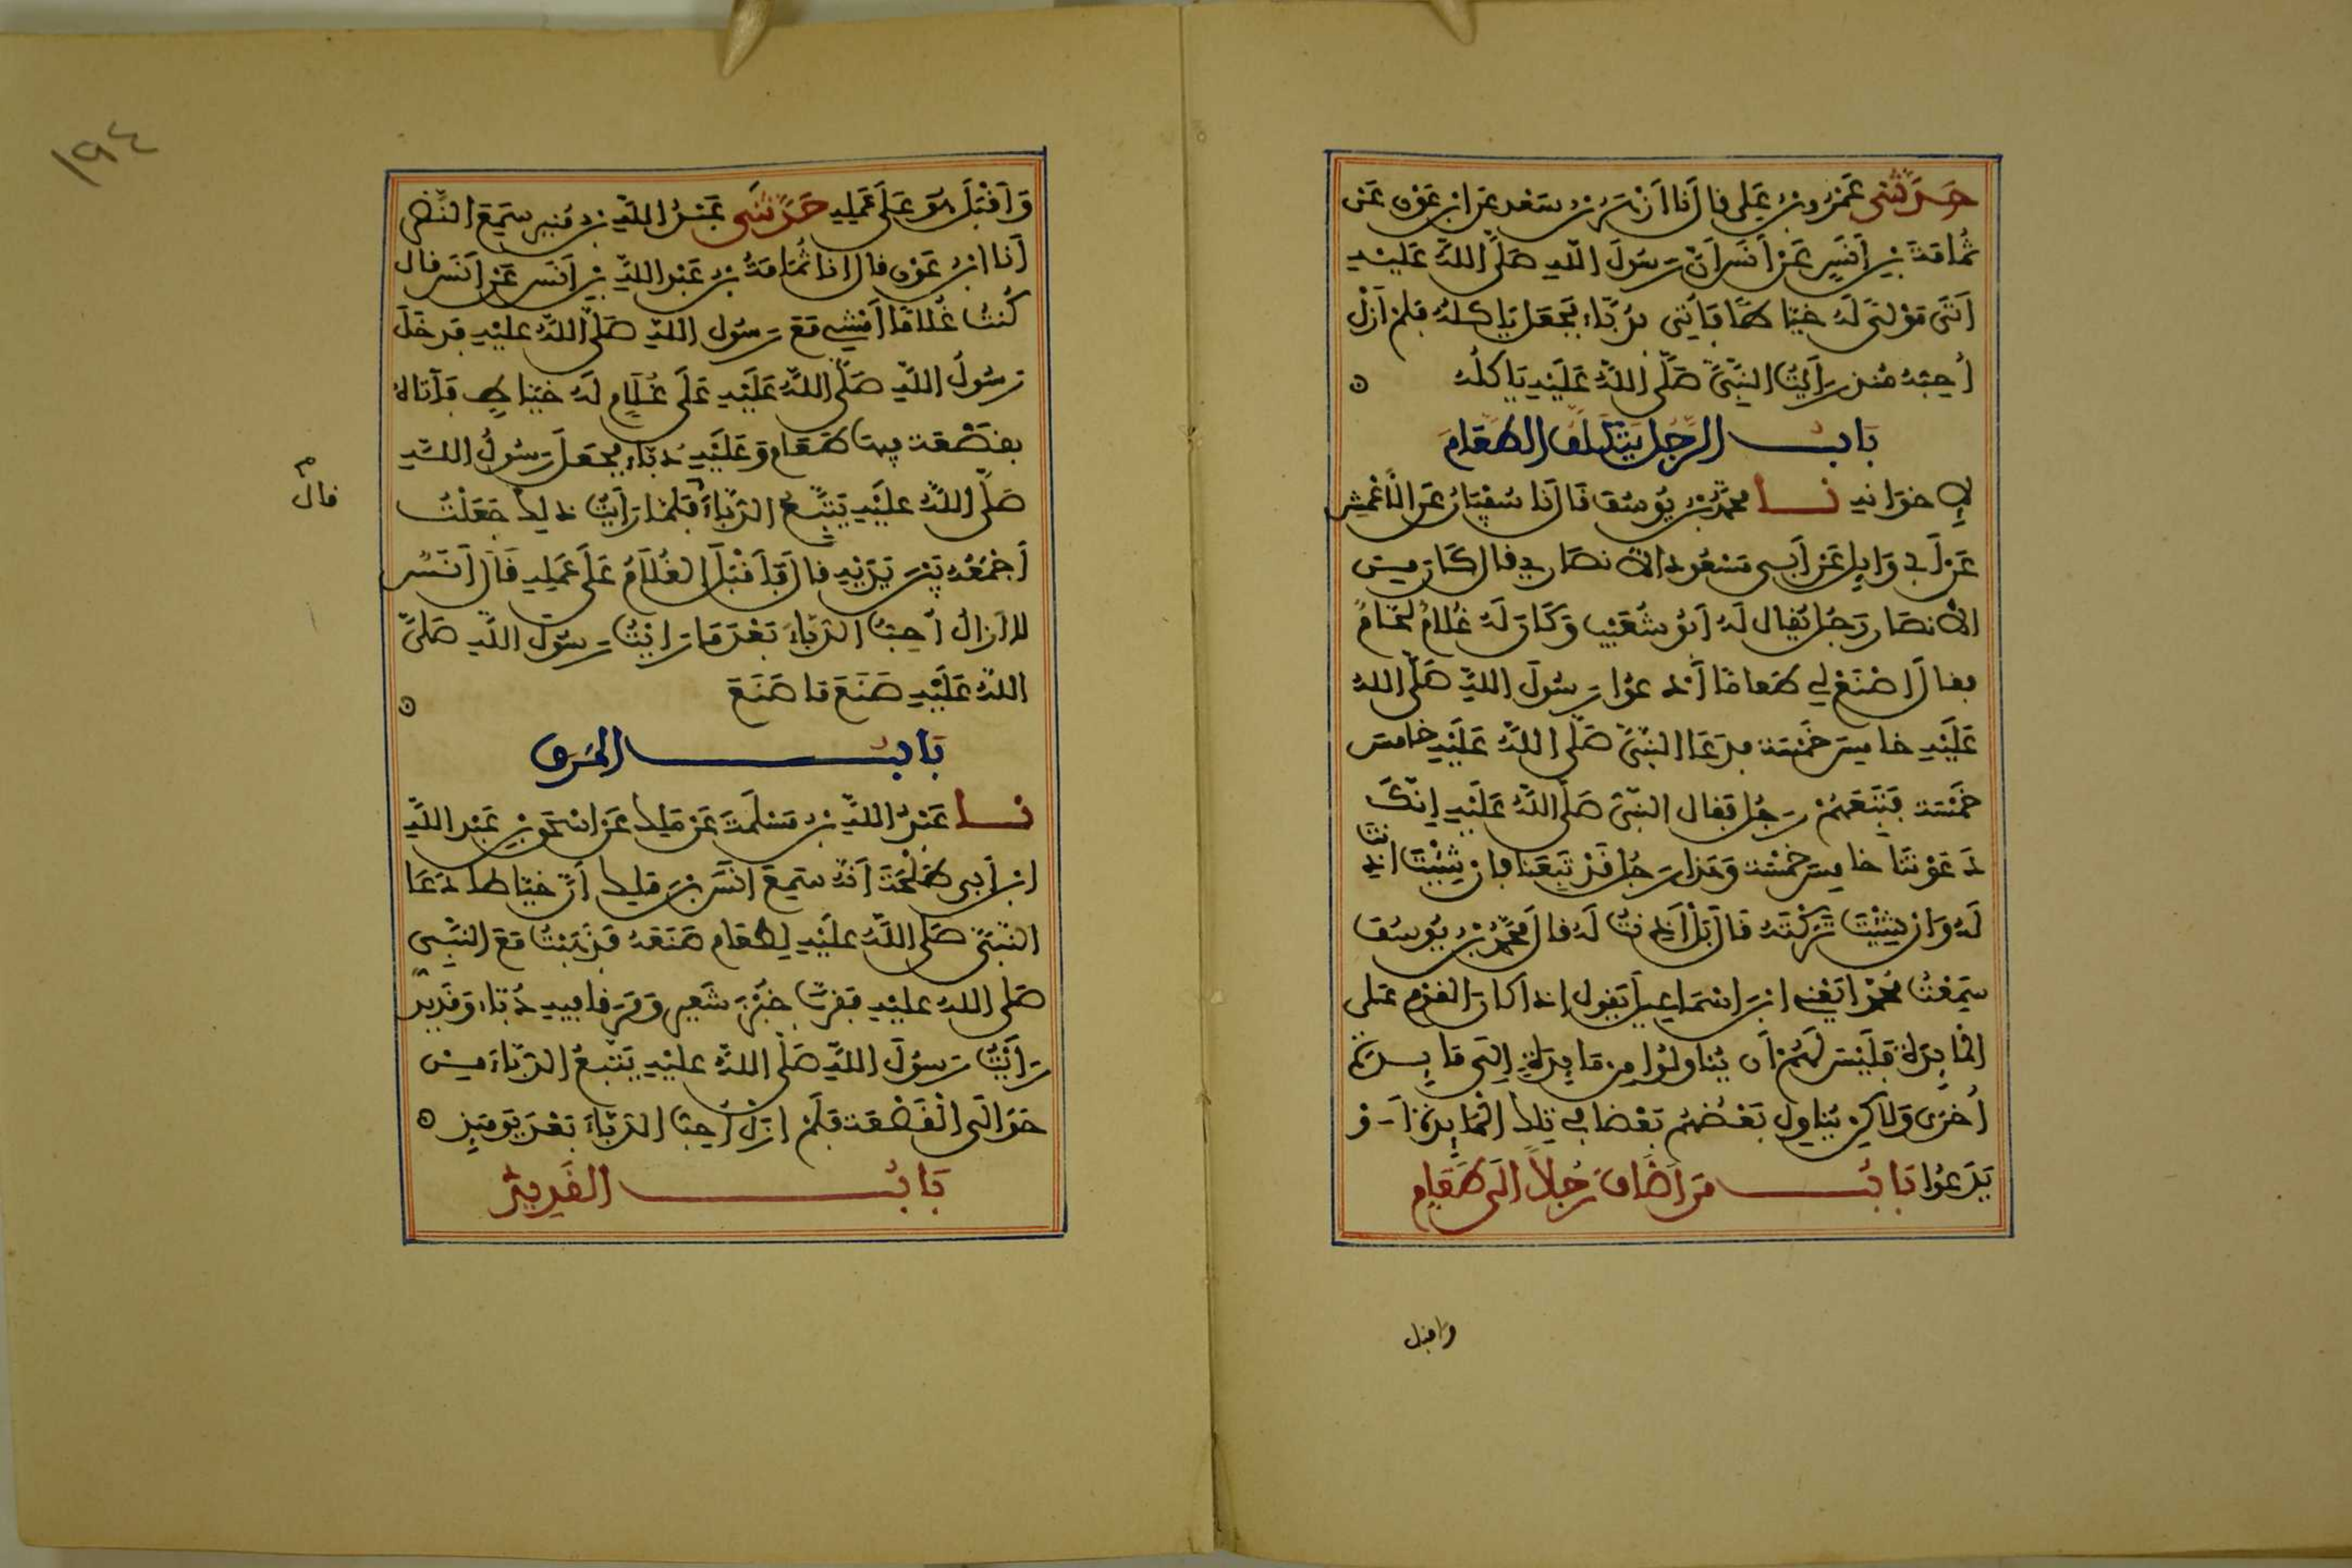 حَدَّثَنِي عَمْرُو بْنُ عَلِي قال أنا أَزْهَرُ بْنُ سَعْدٍ عَنِ ابْنِ عَوْنٍ عَنْ
ثُمَامَةَ بْنِ أَنَسٍ عَنْ أَنَسٍ أَنَّ رَسُولَ اللَّهِ صَلَّى اللَّهُ عَلَيْهِ
أَتَى مَوْلًى لَهُ خَيَّاطًا فَأُتِيَ بِدُبَّاءٍ فَجَعَلَ يَأْكُلُهُ فَلَمْ أَزَلْ
أُحِبُّهُ مُنْذُ رَأَيْتُ النَّبِيَّ صَلَّى اللَّهُ عَلَيْهِ يَأْكُلُهُ
بَابُ الرَّجُلِ يَتَكَلَّفُ الطَّعَامَ
لِإِخْوَانِهِ نا مُحَمَّدُ بْنُ يُوسُفَ قَالَ نا سُفْيَانُ عَنِ الْأَعْمَشِ
عَنْ أَبِي وَايِلٍ عَنْ أَبِي مَسْعُودٍ الْأَنْصَارِي قال كَانَ مِنَ
الْأَنْصَارِ رَجُلٌ يُقَالُ لَهُ أَبُو شُعَيْبٍ وَكَانَ لَهُ غُلَامٌ لَحَّامٌ
فقالَ اصْنَعْ لِي طَعَامًا أَدْعُوا رَسُولَ اللَّهِ صَلَّى اللَّهُ
عَلَيْهِ خَامِسَ خَمْسَةٍ فَدَعَا النَّبِيَّ صَلَّى اللَّهُ عَلَيْهِ خَامِسَ
خَمْسَةٍ فَتَبِعَهُمْ رَجُلٌ فَقَالَ النَّبِيُّ صَلَّى اللَّهُ عَلَيْهِ إِنَّكَ
دَعَوْتَنَا خَامِسَ خَمْسَةٍ وَهَذَا رَجُلٌ قَدْ تَبِعَنَا فَإِنْ شِئْتَ أَذِنْتَ
لَهُ وَإِنْ شِئْتَ تَرَكْتَهُ قَالَ بَلْ أَذِنْتُ لَهُ قال مُحَمَّدُ بْنُ يُوسُفَ
سَمِعْتُ مُحَمَّدًا يَعْنِي ابْنَ إِسْمَاعِيلَ يَقُولُ إِذَا كَانَ الْقَوْمُ عَلَى
الْمَايِدَةِ فَلَيْسَ لَهُمْ أَن يُنَاوِلُوا مِن مَايِدَةٍ إِلَى مَايِدَةٍ
أُخْرَى وَلَاكِنْ يُنَاوِلُ بَعْضُهُمْ بَعْضًا فِي تِلْكَ الْمَايِدَةِ أَوْ
يَدَعُوا بَابُ مَن أَضَافَ رَجُلاً إِلَى طَعَامٍ
وأقبل
١٩٤
وَأَقْبَلَ هُوَ عَلَى عَمَلِهِ حَدَّثَنِي عَبْدُ اللَّهِ بْنُ مُنِيرٍ سَمِعَ النَّضْرَ
أنا ابْنُ عَوْنٍ قال أنا ثُمَامَةُ بْنُ عَبْدِ اللَّهِ بْنِ أَنَسٍ عَنْ أَنَسٍ قال
كُنْتُ غُلَامًا أَمْشِي مَعَ رَسُولِ اللَّهِ صَلَّى اللَّهُ عَلَيْهِ فَدَخَلَ
رَسُولُ اللَّهِ صَلَّى اللَّهُ عَلَيْهِ عَلَى غُلَامٍ لَهُ خَيَّاطٍ فَأَتَاهُ
بِقَصْعَةٍ فِيهَا طَعَامٌ وَعَلَيْهِ دُبَّاءٌ فَجَعَلَ رَسُولُ اللَّهِ
صَلَّى اللَّهُ عَلَيْهِ يَتَتَبَّعُ الدُّبَّاءَ فَلَمَّا رَأَيْتُ ذَلِكَ جَعَلْتُ
قال
أَجْمَعُهُ بَيْنَ يَدَيْهِ قال وَأَقْبَلَ الْغُلَامُ عَلَى عَمَلِهِ قَالَ أَنَسٌ
لَا أَزَالُ أُحِبُّ الدُّبَّاءَ بَعْدَ مَا رَأَيْتُ رَسُولَ اللَّهِ صَلَّى
اللَّهُ عَلَيْهِ صَنَعَ مَا صَنَعَ
بَابُ الْمَرَقِ
نا عَبْدُ اللَّهِ بْنُ مَسْلَمَةَ عَنْ مَلِكٍ عَنْ إِسْحَقَ بْنِ عَبْدِ اللَّهِ
ابْنِ أَبِي طَلْحَةَ أَنَّهُ سَمِعَ أَنَسَ بْنَ مَلِكٍ أَنَّ خَيَّاطًا دَعَا
النَّبِيَّ صَلَّى اللَّهُ عَلَيْهِ لِطَعَامٍ صَنَعَهُ فَذَهَبْتُ مَعَ النَّبِيِّ
صَلَّى اللَّهُ عَلَيْهِ فَقَرَّبَ خُبْزَ شَعِيرٍ وَمَرَقًا فِيهِ دُبَّاءٌ وَقَدِيدٌ
رَأَيْتُ رَسُولَ اللَّهِ صَلَّى اللَّهُ عَلَيْهِ يَتَتَبَّعُ الدُّبَّاءَ مِنْ
حَوَالَيِ الْقَصْعَةِ فَلَمْ أَزَلْ أُحِبُّ الدُّبَّاءَ بَعْدَ يَوْمَيِذٍ
بَابُ الْقَدِيدِ